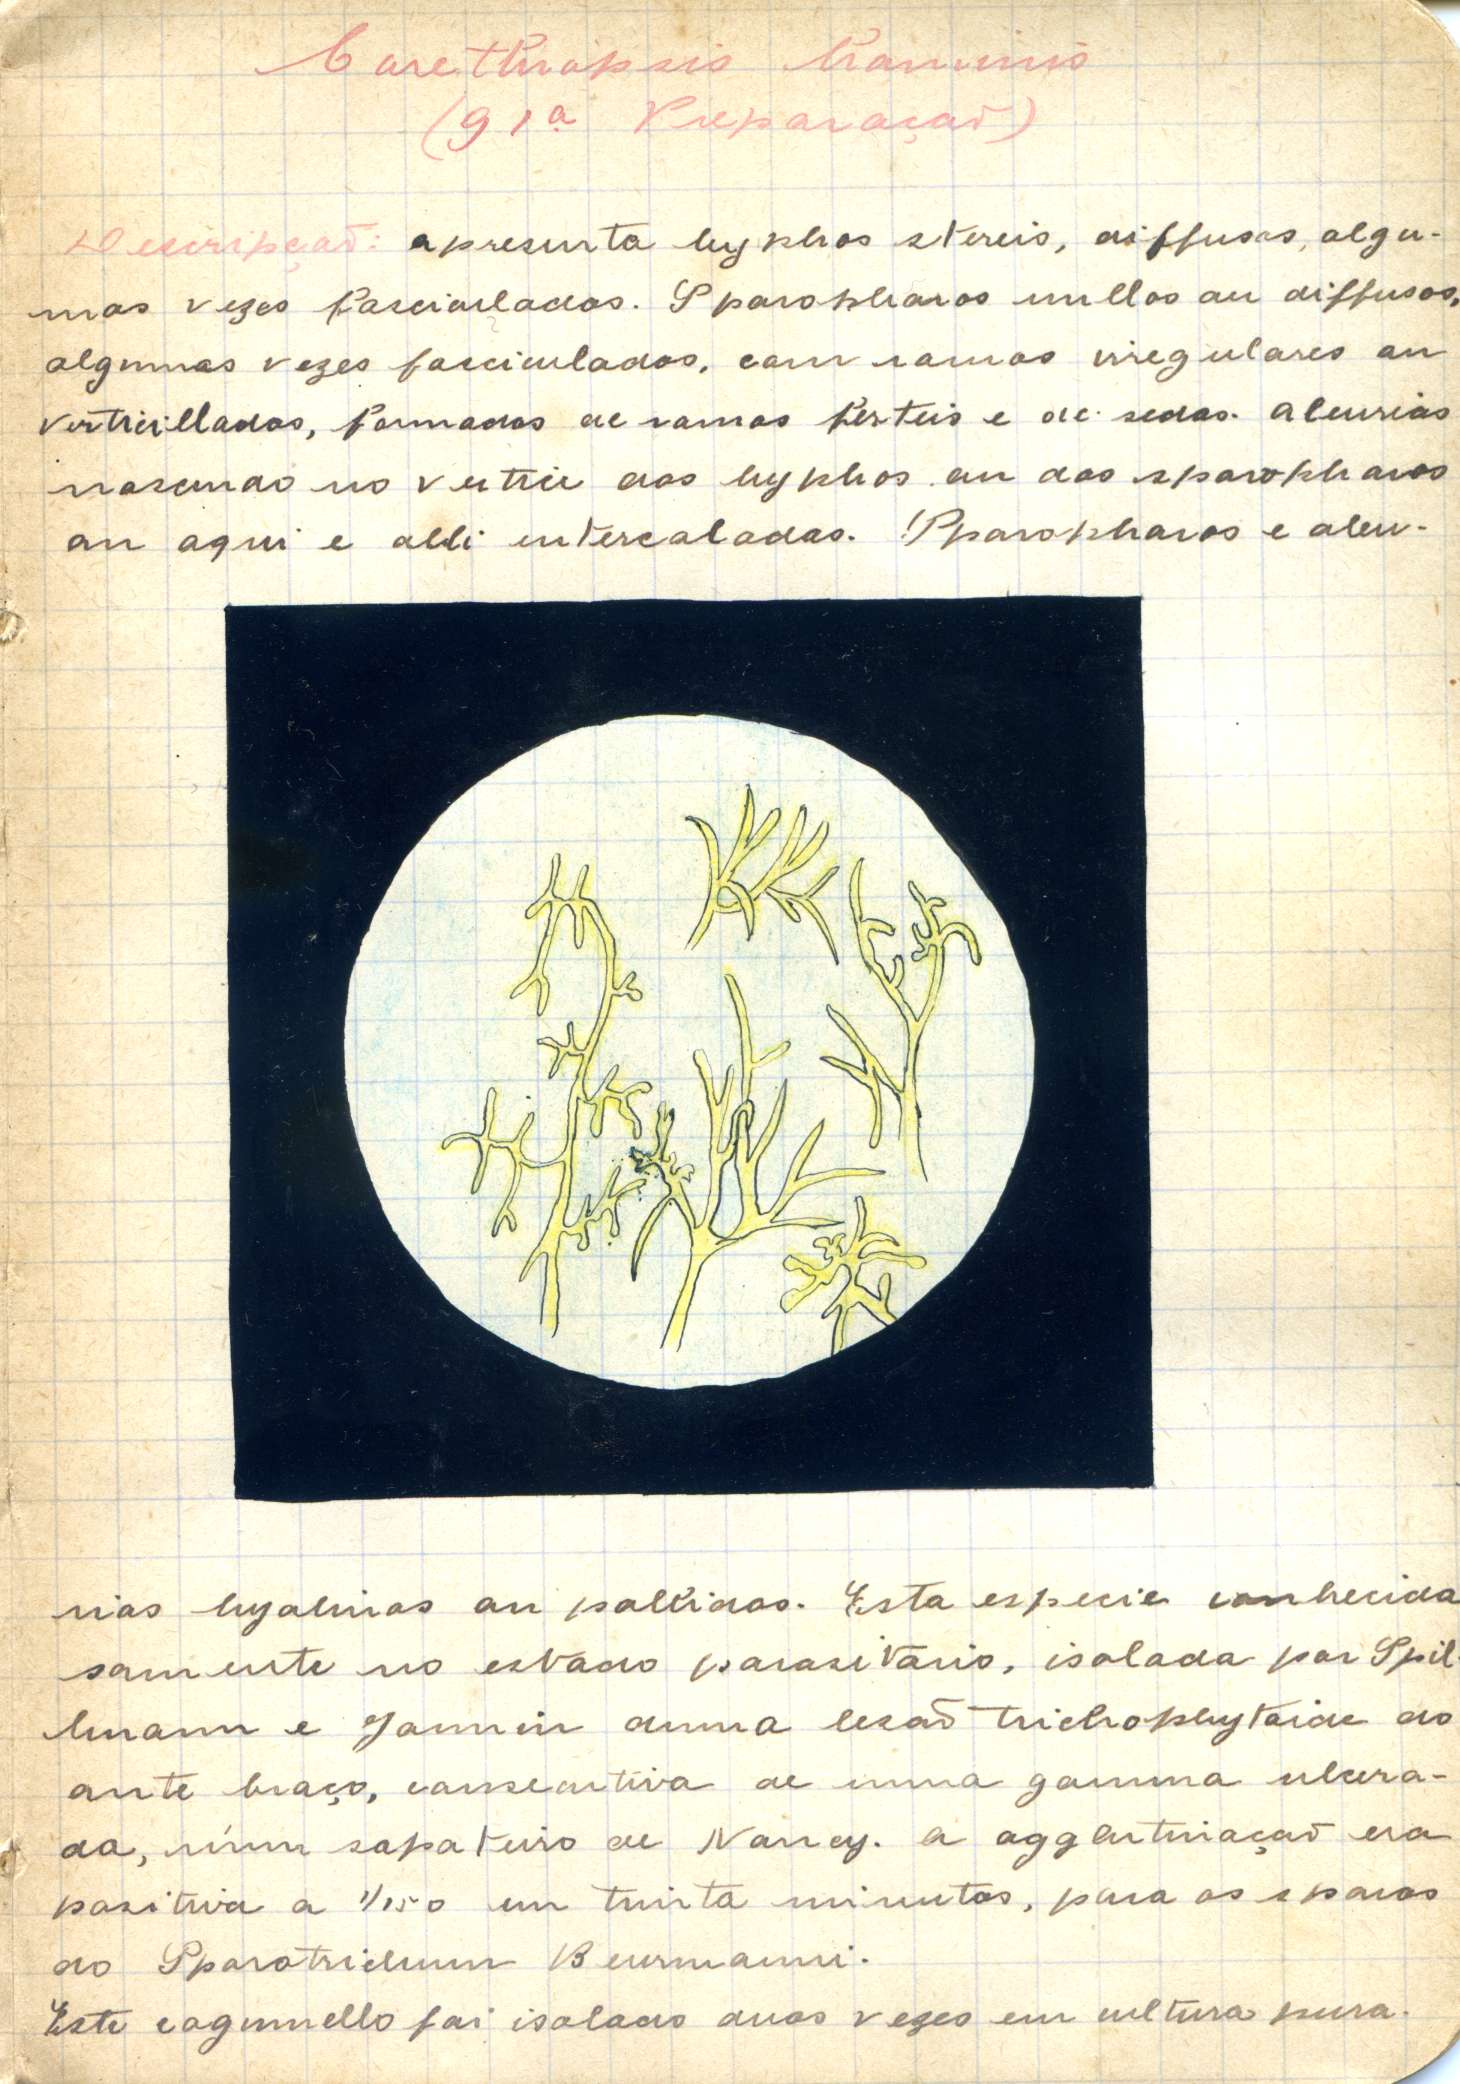 Corethropsis hominis
(91ª Preparação)
Descripção: apresenta hyphos stereis, diffusos, algu-
mas vezes fasciculados. Sporophoros nullos ou diffusos,
algumas vezes fasciculados, com ramos irregulares ou
verticillados, formados de ramos ferteis e de sedas. Aleurias
nascendo no vertice dos hyphos ou dos sporophoros
ou aqui e alli intercaladas. Sporophoros e aleu-
rias hyalinas ou pallidas. Esta especie conhecida
somente no estado parasitario, isolada por Spil-
lmann e Jannin duma lesão trichophytoide do
ante braço, consecutiva de uma gomma ulcera-
da, núm sapateiro de Nancy. A agglutinação era
positiva a 1/150 em trinta minutos, para os sporos
do Sporotrichum Beurmanni.
Este cogumello foi isolado duas vezes em cultura pura.